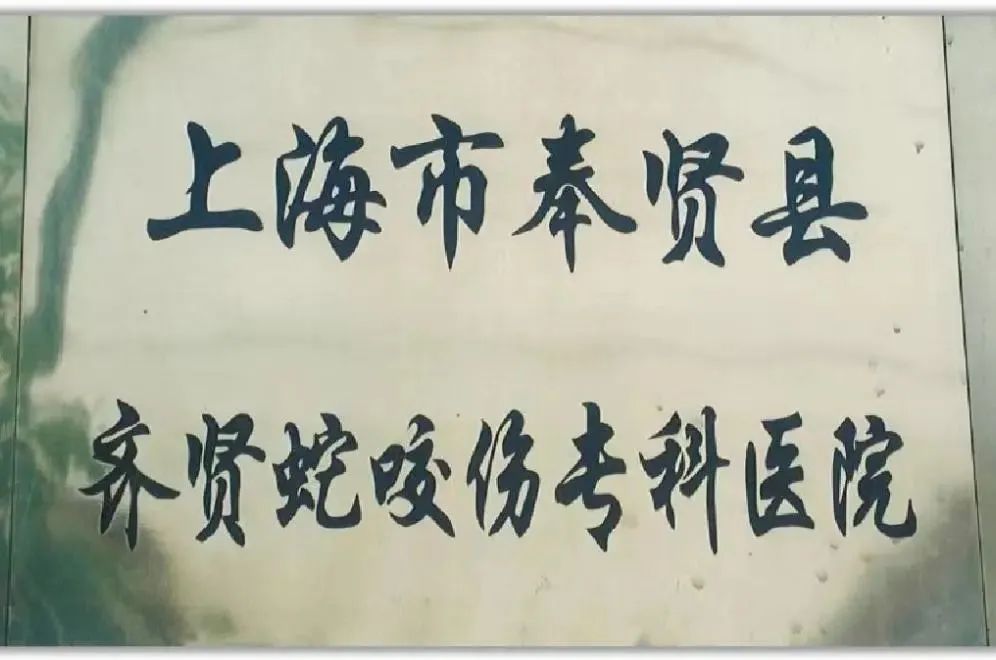 上海市奉贤县
齐贤蛇咬伤专科医院